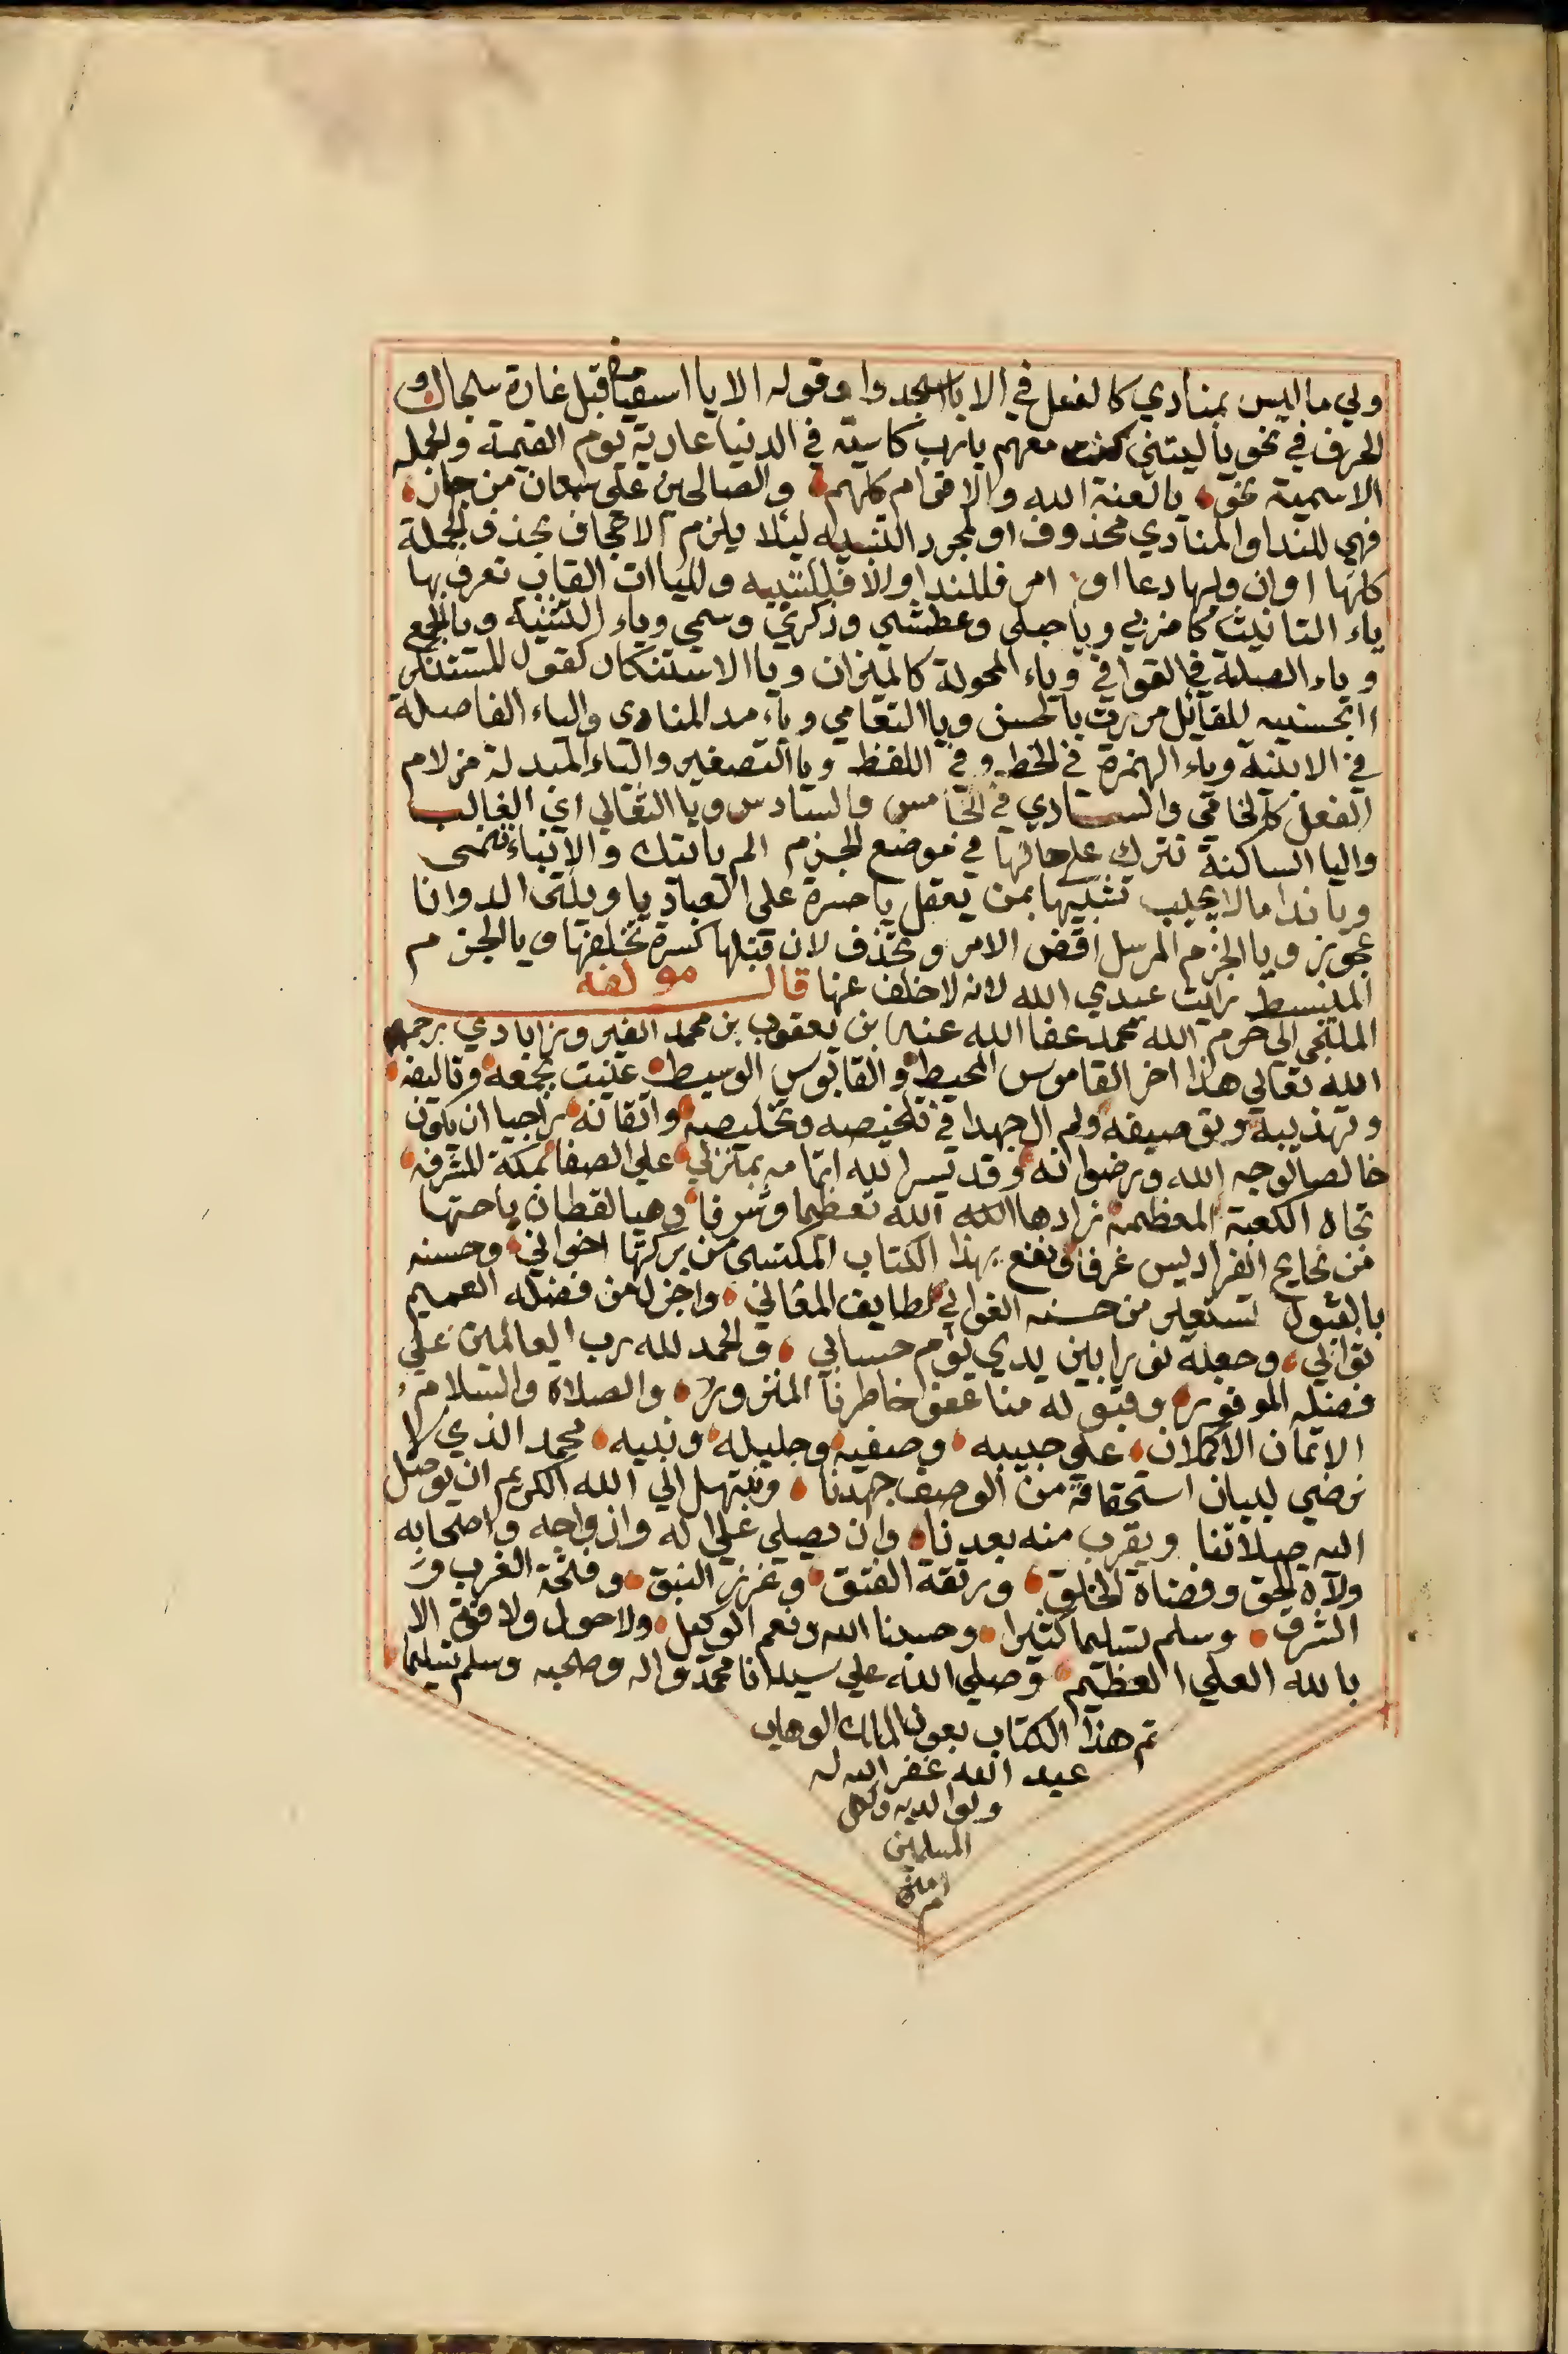 ولي ما ليس بمنادي كالفعل في الا يا اسجدوا وقوله الا يا اسقياني قبل غارة سنجال و
الحرف في نحو يا ليتني كنت معهم يا رب كاسية في الدنيا عارية يوم القيمة والجمله
الاسمية نحو يا لعنة الله والاقوام كلهم والصالحين على سمعان من جار
فهي للندا والمنادي محذوف او لمجرد التنبيه ليلا يلزم الاجحاف بحذف الجملة
كلها او ان وليها دعا او امر فللندا والا فللتنبيه ولليا ات القاب تعرف بها
ياء التانيث كاضربي ويا حبلى وعطشى وذكرى وسمي وياء التثنية ويا الجمع
وياء الصلة في القوافي وياء المحولة كالميزان ويا الاستنكار كقول المستنكر
اابحسنيه للقائل مررت بالحسن ويا التعامي وياء مد المنادي والياء الفاصلة
في الابنية وياء الهمزة في الخط وفي اللفظ ويا التصغير والياء المبدلة من لام
الفعل كالخامي والسادي في الخامس والسادس ويا الثعالي اي الثعالب
واليا الساكنة تترك على حالها في موضع الجزم الم ياتيك والانباء تنمى
ويا ندا ما لا يجيب تشبيها بمن يعقل يا حسرة على العباد يا ويلتى االد وانا
عجوز ويا الجزم المرسل اقض الامر وتحذف لان قبلها كسرة تخلفها ويا الجزم
المنبسط رايت عبدي الله لانه لا خلف عنها قال مولفه
الملتجي الى حرم الله محمد عفا الله عنه بن يعقوب بن محمد الفيروزابادي رحمه
الله تعالي هذا اخر القاموس المحيط والقابوس الوسيط عنيت بجمعه وتاليفه
وتهذيبه وتوصيفه ولم ال جهدا في تلخيصه وتخليصه واتقانه راجيا ان يكون
خالصا لوجه الله ورضوانه وقد يسر الله اتمامه بمنزلي على الصفا بمكة المشرفه
تجاه الكعبة المعظمة زادها الله الله تعظيما وشرفا وهيا لقطان باحتها
من بحابح الفراديس غرفا ونفع بهذا الكتاب المكتسى من بركتها اخواني وحسنه
بالقبول لتستعير من حسنه الغواني لطايف المعاني واجزل من فضله العميم
ثوابي وجعله نورا بين يدي يوم حسابي والحمد لله رب العالمين علي
فضله الموفور وقبوله منا عفو خاطرنا المنزور والصلاة والسلام
الاتمان الاكملان على حبيبه وصفيه وخليله ونبيه محمد الذي لا
نرضي لبيان استحقاقه من الوصف جهدنا ونبتهل الي الله الكريم ان يوصل
اليه صلاتنا ويقرب منه بعدنا وان يصلي علي اله وازواجه واصحابه
ولاة الحق وقضاة الخلق ورتقة الفتق وغرر السبق وفتحة الغرب و
الشرق وسلم تسليما كثيرا وحسبنا الله ونعم الوكيل ولا حول ولا قوة الا
بالله العلي العظيم وصلي الله علي سيدنا محمد واله وصحبه وسلم تسليما
تم هذا الكتاب بعون الملك الوهاب
عبد الله غفر الله له
ولوالديه ولكل
المسلمين
امين
م